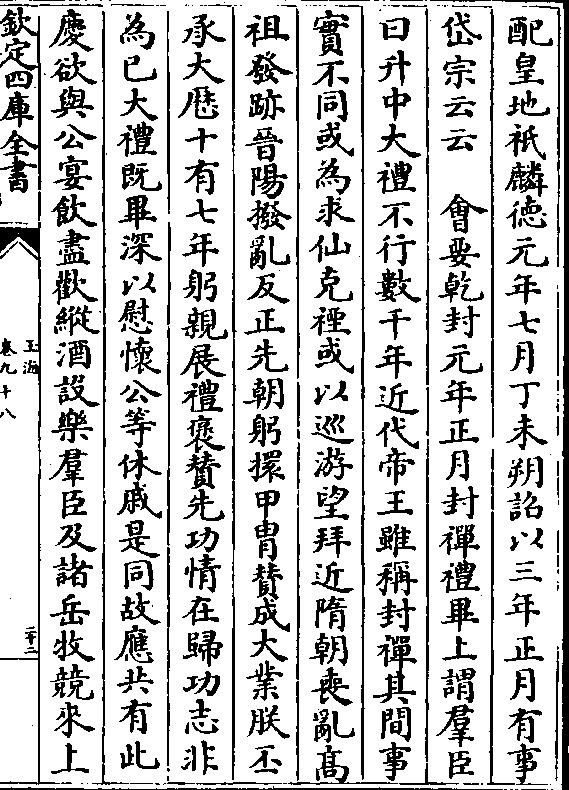 配皇地祇麟徳元年七月丁未朔詔以三年正月有事
岱宗云云　會要乾封元年正月封禪禮畢上謂羣臣
曰升中大禮不行數千年近代帝王雖稱封禪其間事
實不同或為求仙克禋或以巡游望拜近隋朝喪亂髙
祖發跡晉陽撥亂反正先朝躬擐甲胄賛成大業朕丕
承大厯十有七年躬親展禮褒賛先功情在歸功志非
為已大禮既畢深以慰懷公等休戚是同故應共有此
慶欲與公宴飲盡歡縱酒設樂羣臣及諸岳牧競來上
欽定四庫全書
玉海
卷九十八
二十二